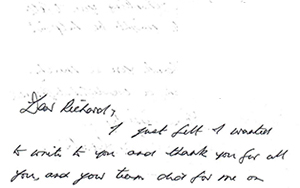 Dear Richard,
I just felt I wanted
to write to you and thank you for all
you, and your team did for me on